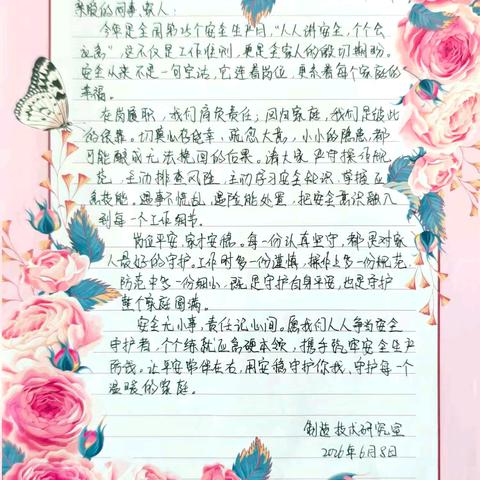 亲爱的同事、家人：
今年是全国第25个安全生产月，“人人讲安全，个个会
应急”，这不仅是工作准则，更是全家人的殷切期盼。
安全从来不是一句空话，它连着岗位，更系着每个家庭的
幸福。
在岗履职，我们肩负责任；回归家庭，我们是彼此
的依靠。切莫心存侥幸、疏忽大意，小小的隐患，都
可能酿成无法挽回的后果。请大家严守操作规
范，主动排查风险，主动学习安全知识、掌握应
急技能。遇事不慌乱，遇险能处置，把安全意识融入
到每一个工作细节。
岗位平安，家才安稳。每一份认真坚守，都是对家
人最好的守护。工作时多一份谨慎，操作上多一份规范，
防范中多一份细心，既是守护自身平安，也是守护
整个家庭圆满。
安全无小事，责任记心间。愿我们人人争当安全
守护者，个个练就应急硬本领，携手筑牢安全生产
防线。让平安常伴左右，用安稳守护你我、守护每一个
温暖的家庭。
制造技术研究室
2026年6月8日